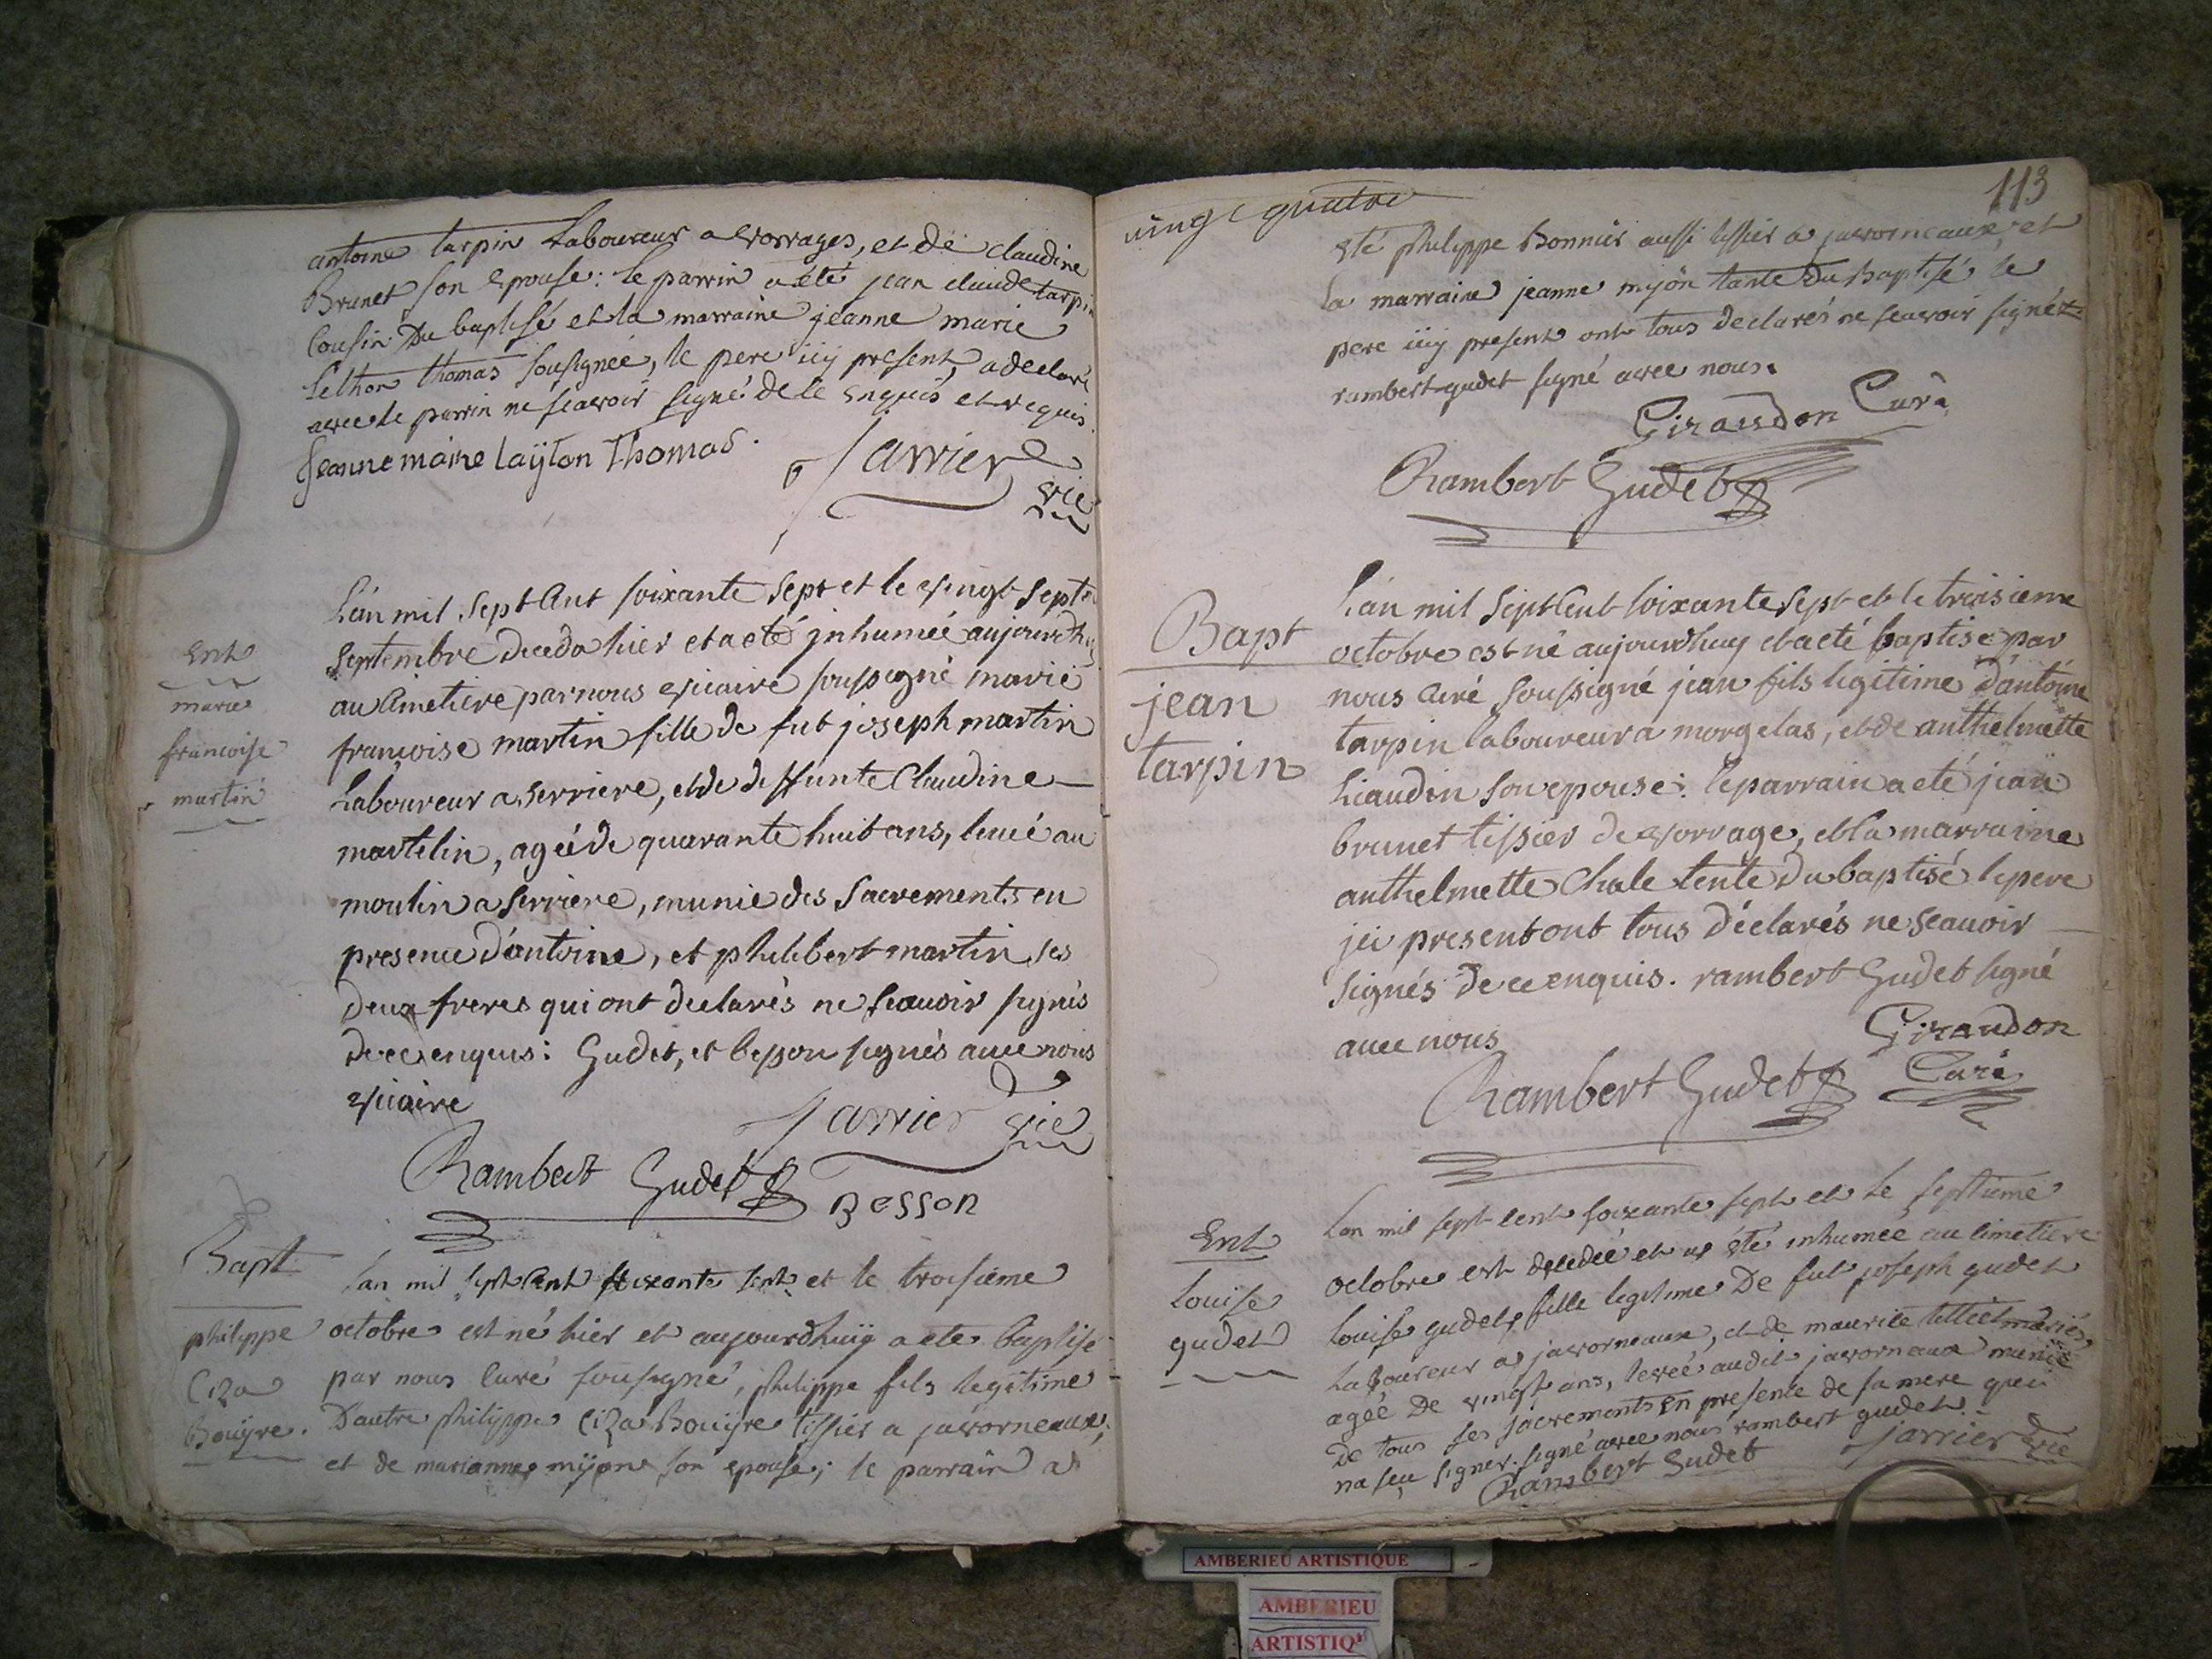 antoine tarpin Laboureur a vorrages, et de claudine
Brunet son epouse: le parrin a été jean claude tarpin
Cousin Du baptisé et la marraine jeanne marie
lethon thomas sousignée, le pere icy present, a declaré
avec le parrin ne sçavoir signé de ce enquis et requis.
Jeanne marie laÿton Thomas.
Jarrier
vic
Ent
marie
francoise
martin
L'an mil sept Cent soixante sept et le vingt sept
septembre deceda hier et a eté jnhumée aujourdhuy
au Cimetiere par nous vicaire soussigné marie
françoise martin fille de fut joseph martin
Laboureur a serriere, et de deffunte Claudine
martelin, ageé de quarante huit ans, leveé au
moulin a serriere, munie des Sacrements en
presence d'antoine, et philibert martin ses
deux freres qui ont declarés ne scavoir signés
de ce enquis: Gudet, et besson signés avec nous
vicaire
Jarrier vic
Rambert Gudet
Besson
Bapt
philippe
Ciza
Bouÿre.
Lan mil sept Cent soixante sept et le troisième
octobre est né hier et aujourdhuÿ a eté baptisé
par nous curé sousigné, philippe fils legitime
D'autre philippe Ciza Bouÿre tissier a javorneaux;
et de marianne mÿon son epouse; le parrain a
vingt quatre
113
eté philippe Bonnier aussi tissier a javorneaux, et
la marraine jeanne mÿon tante Du Baptisé le
pere icy present ont tous declarés ne scavoir signéz
rambert gudet signé avec nous.
Giraudon Curé
Rambert Gudet
Bapt
jean
tarpin
L'an mil sept Cent soixante sept et le troisieme
octobre est né aujourdhuy et a eté baptise par
nous Curé soussigné jean fils legitime d'antoine
tarpin laboureur a morgelas, et de anthelmette
liaudin son epouse: le parrain a eté jean
brunet tissier de vorrage, et la marraine
anthelmette Chale tente du baptisé le pere
jci present ont tous déclarés ne scauoir
signés de ce enquis. rambert Gudet signé
avec nous
Giraudon
Curé
Rambert Gudet
Ent
Louise
gudet
Lan mil sept cent soixante sept et le septieme
octobre est decedée et a été inhumée au cimetiere
Louise gudet fille legitime De fut joseph gudet
Laboureur a javorneaux, et de maurice mariés,
agée De vingt ans, levée audit javornaux munie
De tous ses sacrements en presence de sa mere qui
na sçu signer. signé avec nous rambert gudet.
Jarrier vic
Rambert Gudet
AMBERIEU ARTISTIQUE
AMBERIEU
ARTISTIQ